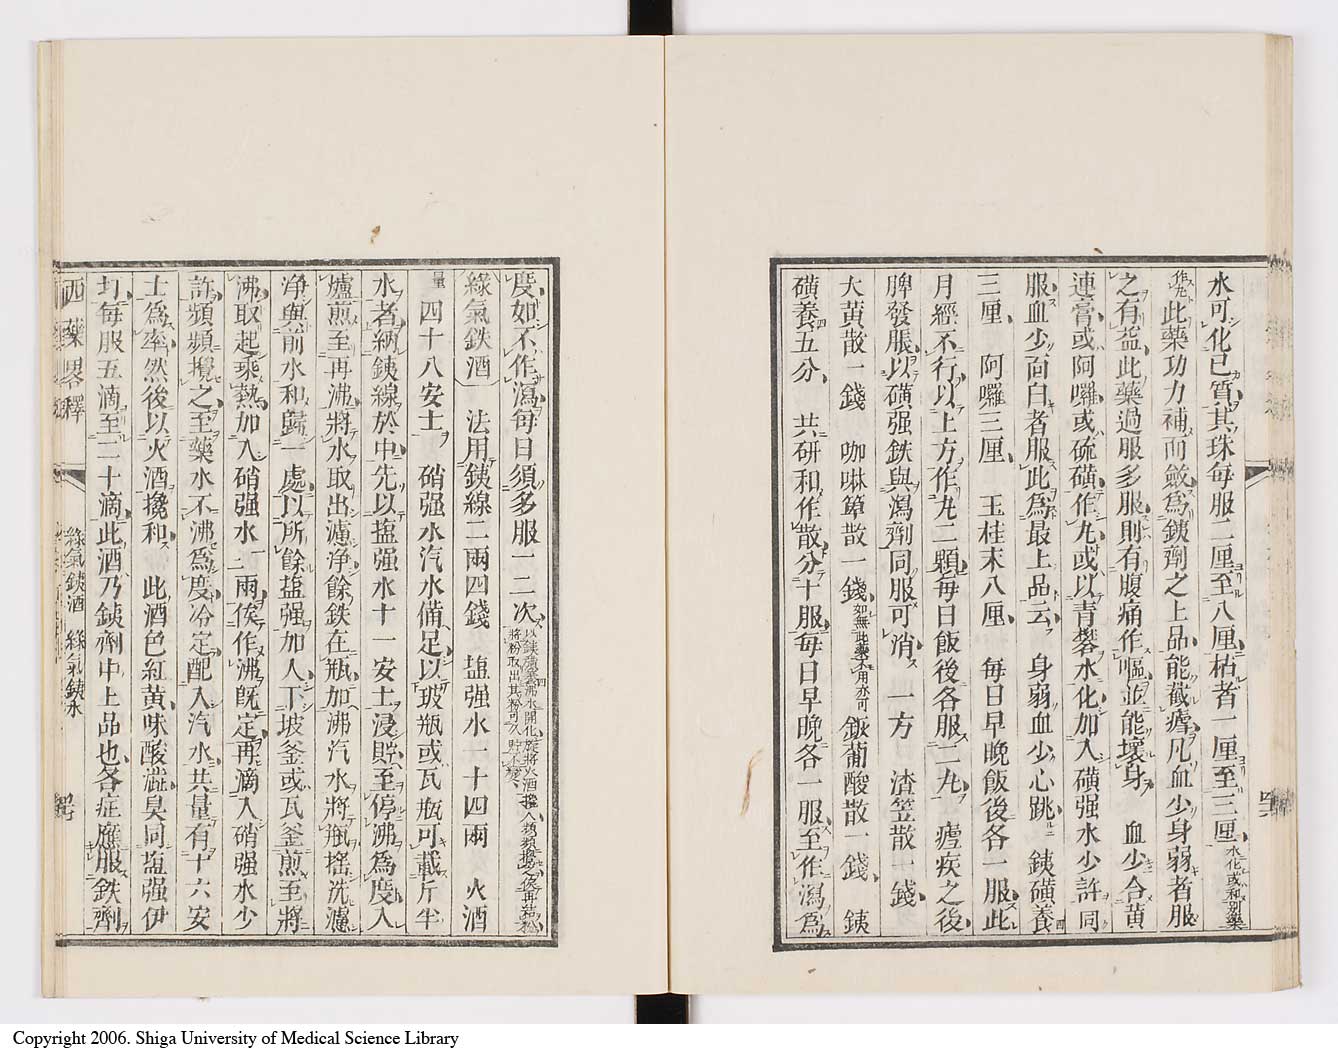 水可化已質其珠每服二厘至八厘枯者一厘至三厘水化或和別藥
此藥功力補而斂爲銕劑之上品能截瘧凡血少身弱者服
之有益此藥過服多服則有腹痛作嘔並能壞身　血少合黄
連膏或阿囉或硫磺作丸或以青礬水化加入磺强水少許同
服血少面白者服此爲最上品云　身弱血少心跳　銕磺養四
三厘　阿囉三厘　玉桂末八厘　每日早晩飯後各一服此
月經不行以上方作丸二顆每日飯後各服一二丸　瘧疾之後
脾發脹以磺强鉄與瀉劑同服可消　一方　渣笠散一錢
大黄散一錢　咖啉箪散一錢如無此藥不用亦可　鏾葡酸散一錢　銕
磺養四五分　共研和作散分十服每日早晩各一服至作瀉爲
度如不作瀉每日須多服一二次
綠氣鉄酒　法用銕線二兩四錢　塩强水一十四兩　火酒
量四十八安士　硝强水汽水備足以玻瓶或瓦瓶可載斤半
水者納銕線於中先以塩强水十一安士浸貯至停沸爲度入
爐煎至再沸將水取出濾淨餘鉄在瓶加沸汽水將瓶搖洗濾
淨與前水和歸一處以所餘塩强加入下坡釜或瓦釜煎至將
沸取起乘熱加入硝强水一二兩俟作沸旣定再滴入硝强水少
許頻頻攪之至藥水不沸爲度冷定配入汽水共量有十六安
士爲率然後以火酒攙和　此酒色紅黄味酸澁臭同塩强伊
打每服五滴至二十滴此酒乃銕劑中上品也各症應服鉄劑
西藥畧釋
綠氣銕酒　綠氣銕水
Copyright 2006. Shiga University of Medical Science Library